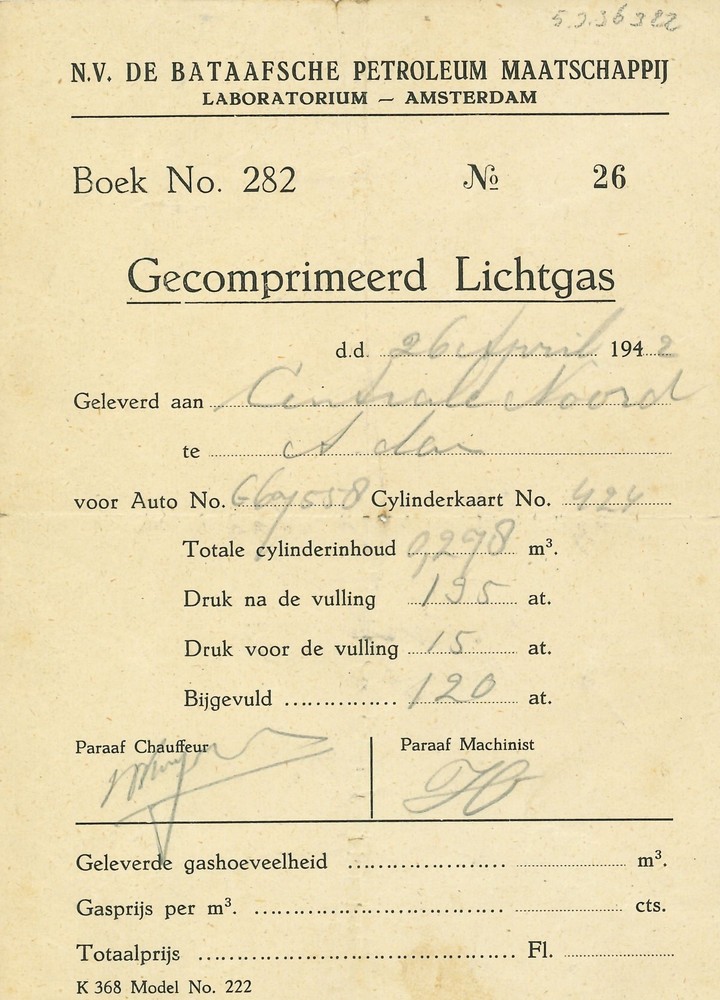 5.3.36322
N.V. DE BATAAFSCHE PETROLEUM MAATSCHAPPIJ
LABORATORIUM — AMSTERDAM
Boek No. 282 № 26
Gecomprimeerd Lichtgas
d.d. 26 April 1942
Geleverd aan Centrale Noord
te A dam
voor Auto No. G67558 Cylinderkaart No. 424
Totale cylinderinhoud 0,298 m³.
Druk na de vulling 135 at.
Druk voor de vulling 15 at.
Bijgevuld .............. 120 at.
Paraaf Chauffeur Paraaf Machinist
Geleverde gashoeveelheid .................... m³.
Gasprijs per m³. ............................... cts.
Totaalprijs ....................................... Fl.
K 368 Model No. 222